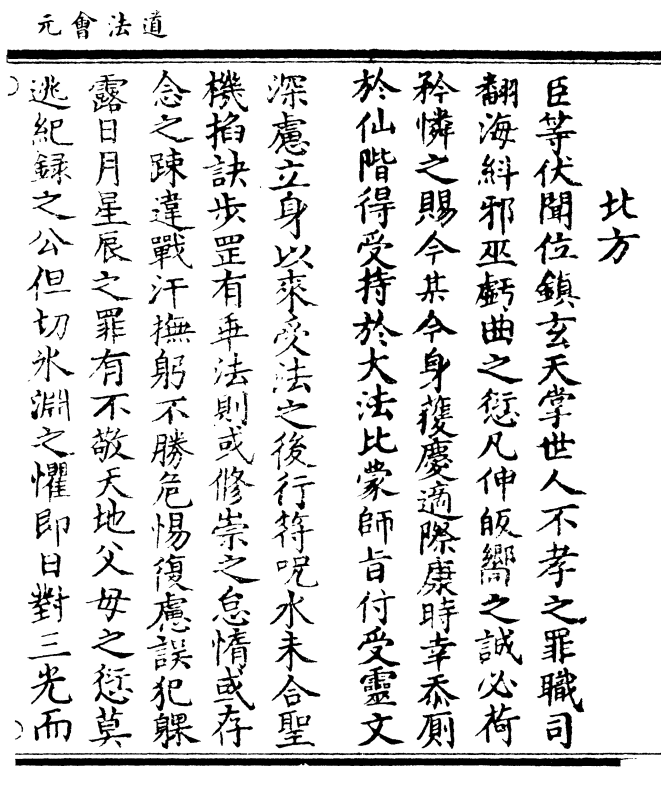 道法會元
北方
臣等伏聞位鎮玄天掌世人不孝之罪職司
翻海糾邪巫虧曲之愆凡伸皈嚮之誠必荷
矜憐之賜今某今身獲慶適際康時幸忝厠
於仙階得受持於大法比蒙師旨付受靈文
深慮立身以來受法之後行符呪水未合聖
機掐訣步罡有乖法則或修崇之怠惰或存
念之踈違戰汗撫躬不勝危惕復慮誤犯躶
露日月星辰之罪有不敬天地父母之愆莫
逃紀録之公但切氷淵之懼即日對三光而